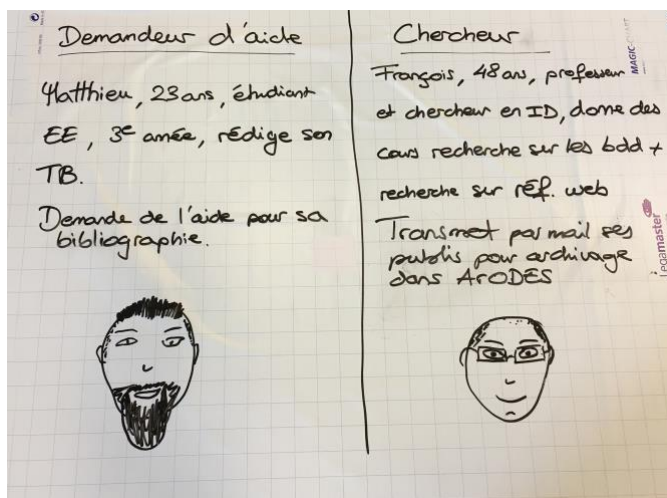 Demandeur d'aide
Matthieu, 23 ans, étudiant
EE, 3e année, rédige son
TB.
Demande de l'aide pour sa
bibliographie.
Chercheur
François, 48 ans, professeur
et chercheur en ID, donne des
cours recherche sur les bdd +
recherche sur réf. web
Transmet par mail ses
publis pour archivage
dans ArODES
MAGIC-CHART
Legamaster